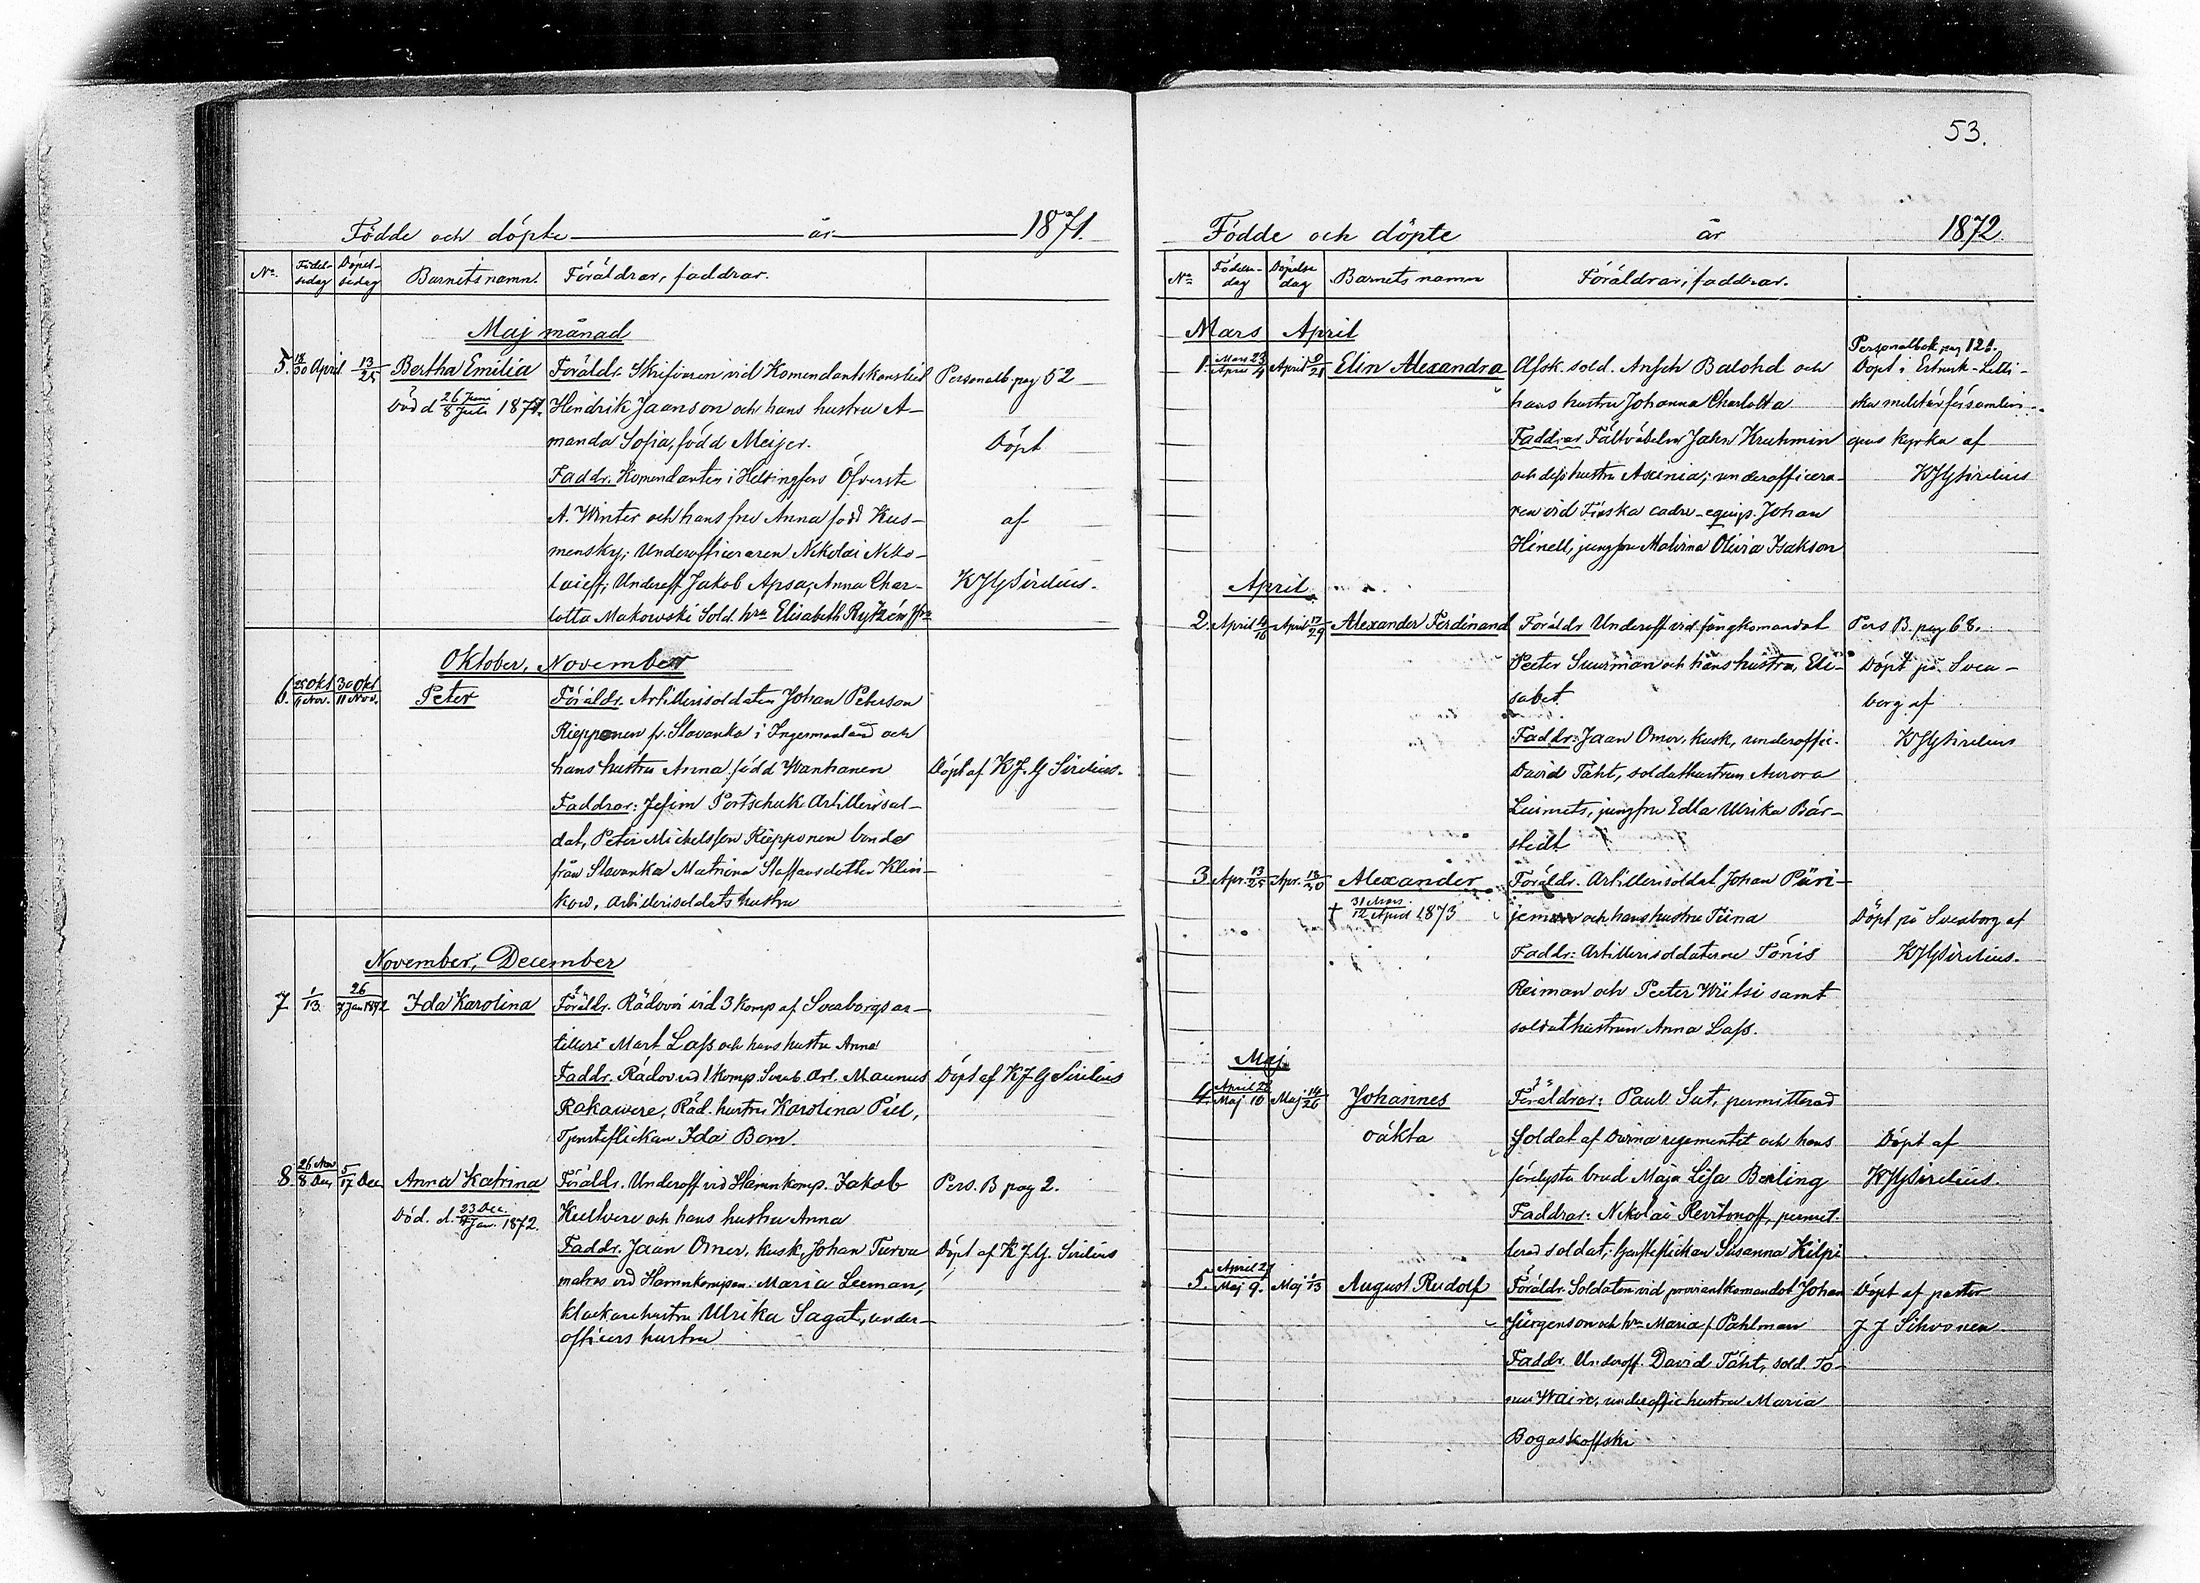 Födde och döpte år 1871.
No. Födel-sedag Döpel-sedag Barnets namn. Föräldrar, faddrar.
Maj månad
5. 18/30 April 13/25 Bertha Emilia Föräldr. Skrifvaren vid Komendantskansliet Personalb. pag 52
Död d 26 Juni/8 Juli 1871. Hendrik Jaanson och hans hustru A-
manda Sofia, född Meijer. Döpt
Faddr. Komendanten i Helsingfors Öfverste
A. Winter och hans fru Anna född Kus- af
mensky; Underofficeraren Nikolai Niko-
laieff; Underoff. Jakob Apsa; Anna Char- KJGSirelius.
lotta Makowski Sold. hru Elisabeth Rytzén
Oktober, November
6. 25 Okt/ Nov. 30 Okt/11 Nov. Peter Föräldr. Artillerisoldaten Johan Peterson
Riepponen fr. Slavanka i Ingermanland och
hans hustru Anna född Wanhanen Döpt af K J. G Sirelius.
Faddrar: Jefim Portschuk Artillerisol-
dat, Peter Mickelsson Riepponen bonde
från Slavanka Matriona Staffansdotter Klin-
kow, artillerisoldats hustru
November, December
7 1/13. 26/7 Jan 1872 Ida Karolina Föräldr. Rådovoi vid 3 Komp af Sveaborgs ar-
tilleri Mart Lass och hans hustru Anna
Faddr. Rådov. vid 1 Komp. Sveab. Art. Maunus Döpt af K J G Sirelius
Rakawere, Råd. hustru Karolina Piel,
Tjensteflickan Ida Bom.
8. 26 Nov/8 Dec 5/17 Dec Anna Katrina Föräldr. Underoff vid Hamnkomp. Jakob Pers. B pag 2.
Död. d. 23 Dec./4 Jan. 1872. Kullvere och hans hustru Anna
Faddr. Jaan Omer, kusk, Johan Turvu Döpt af K J.G. Sirelius
matros vid Hamnkompan. Maria Leeman,
klockarehustru Ulrika Sagat, under-
officers hustru
53.
Födde och döpte år 1872.
No Födelse-dag Döpelse dag Barnets namn Föräldrar, faddrar.
Mars April
Personalbok pag 128.
1. Mars 23/April 4 April 9/21 Elin Alexandra Afsk. sold. Ansch Balohd och Döpt i Estnisk-Letti-
hans hustru Johanna Charlotta ska militärförsamlin-
Faddrar Fältväbeln Jahn Kruhmin gens kyrka af
och dess hustru Axinia; underofficera- KJGSirelius
ren vid Finska cadre-equip. Johan
Hinell, jungfru Malvina Olivia Isakson
April
2. April 4/16 April 17/29 Alexander Ferdinand Föräldr Underoff vid fångkomandot Pers B. pag 68.
Peeter Suurman och hans hustru, Eli- Döpt på Svea-
sabet borg af
Faddr: Jaan Omer, kusk, underoffic. KJGSirelius
David Täht, soldathustrun Aurora
Luimets, jungfru Edla Ulrika Bär-
stedt
3 Apr. 13/25 Apr. 18/30 Alexander Föräldr. Artillerisoldat Johan Püri-
† 31 Mars/12 April 1873 jeman och hans hustru Tiina Döpt på Sveaborg af
Faddr: Artillerisoldaterne Tönis KJGSirelius.
Reiman och Peeter Wiitsi samt
soldathustrun Anna Lass.
Maj
4. April 28/Maj 10 Maj 14/26 Johannes Föräldrar: Paul Sut, permitterad
oäkta soldat af Dvina regementet och hans Döpt af
förlofvade brud Maja Lisa Berling KJGSirelius.
Faddrar: Nikolai Revitonoff, permit-
terad soldat; tjensteflickan Susanna Kilpi
5. April 27/Maj 9. Maj 1/13 August Rudolf Föräldr. Soldaten vid proviantkomandot Johan Döpt af pastor
Jürgenson och hru Maria f. Pahlman J J Sihvonen
Faddr. Underoff. David Täht, sold. Tö-
nu Waire, underoffichustru Maria
Bogaskoffski